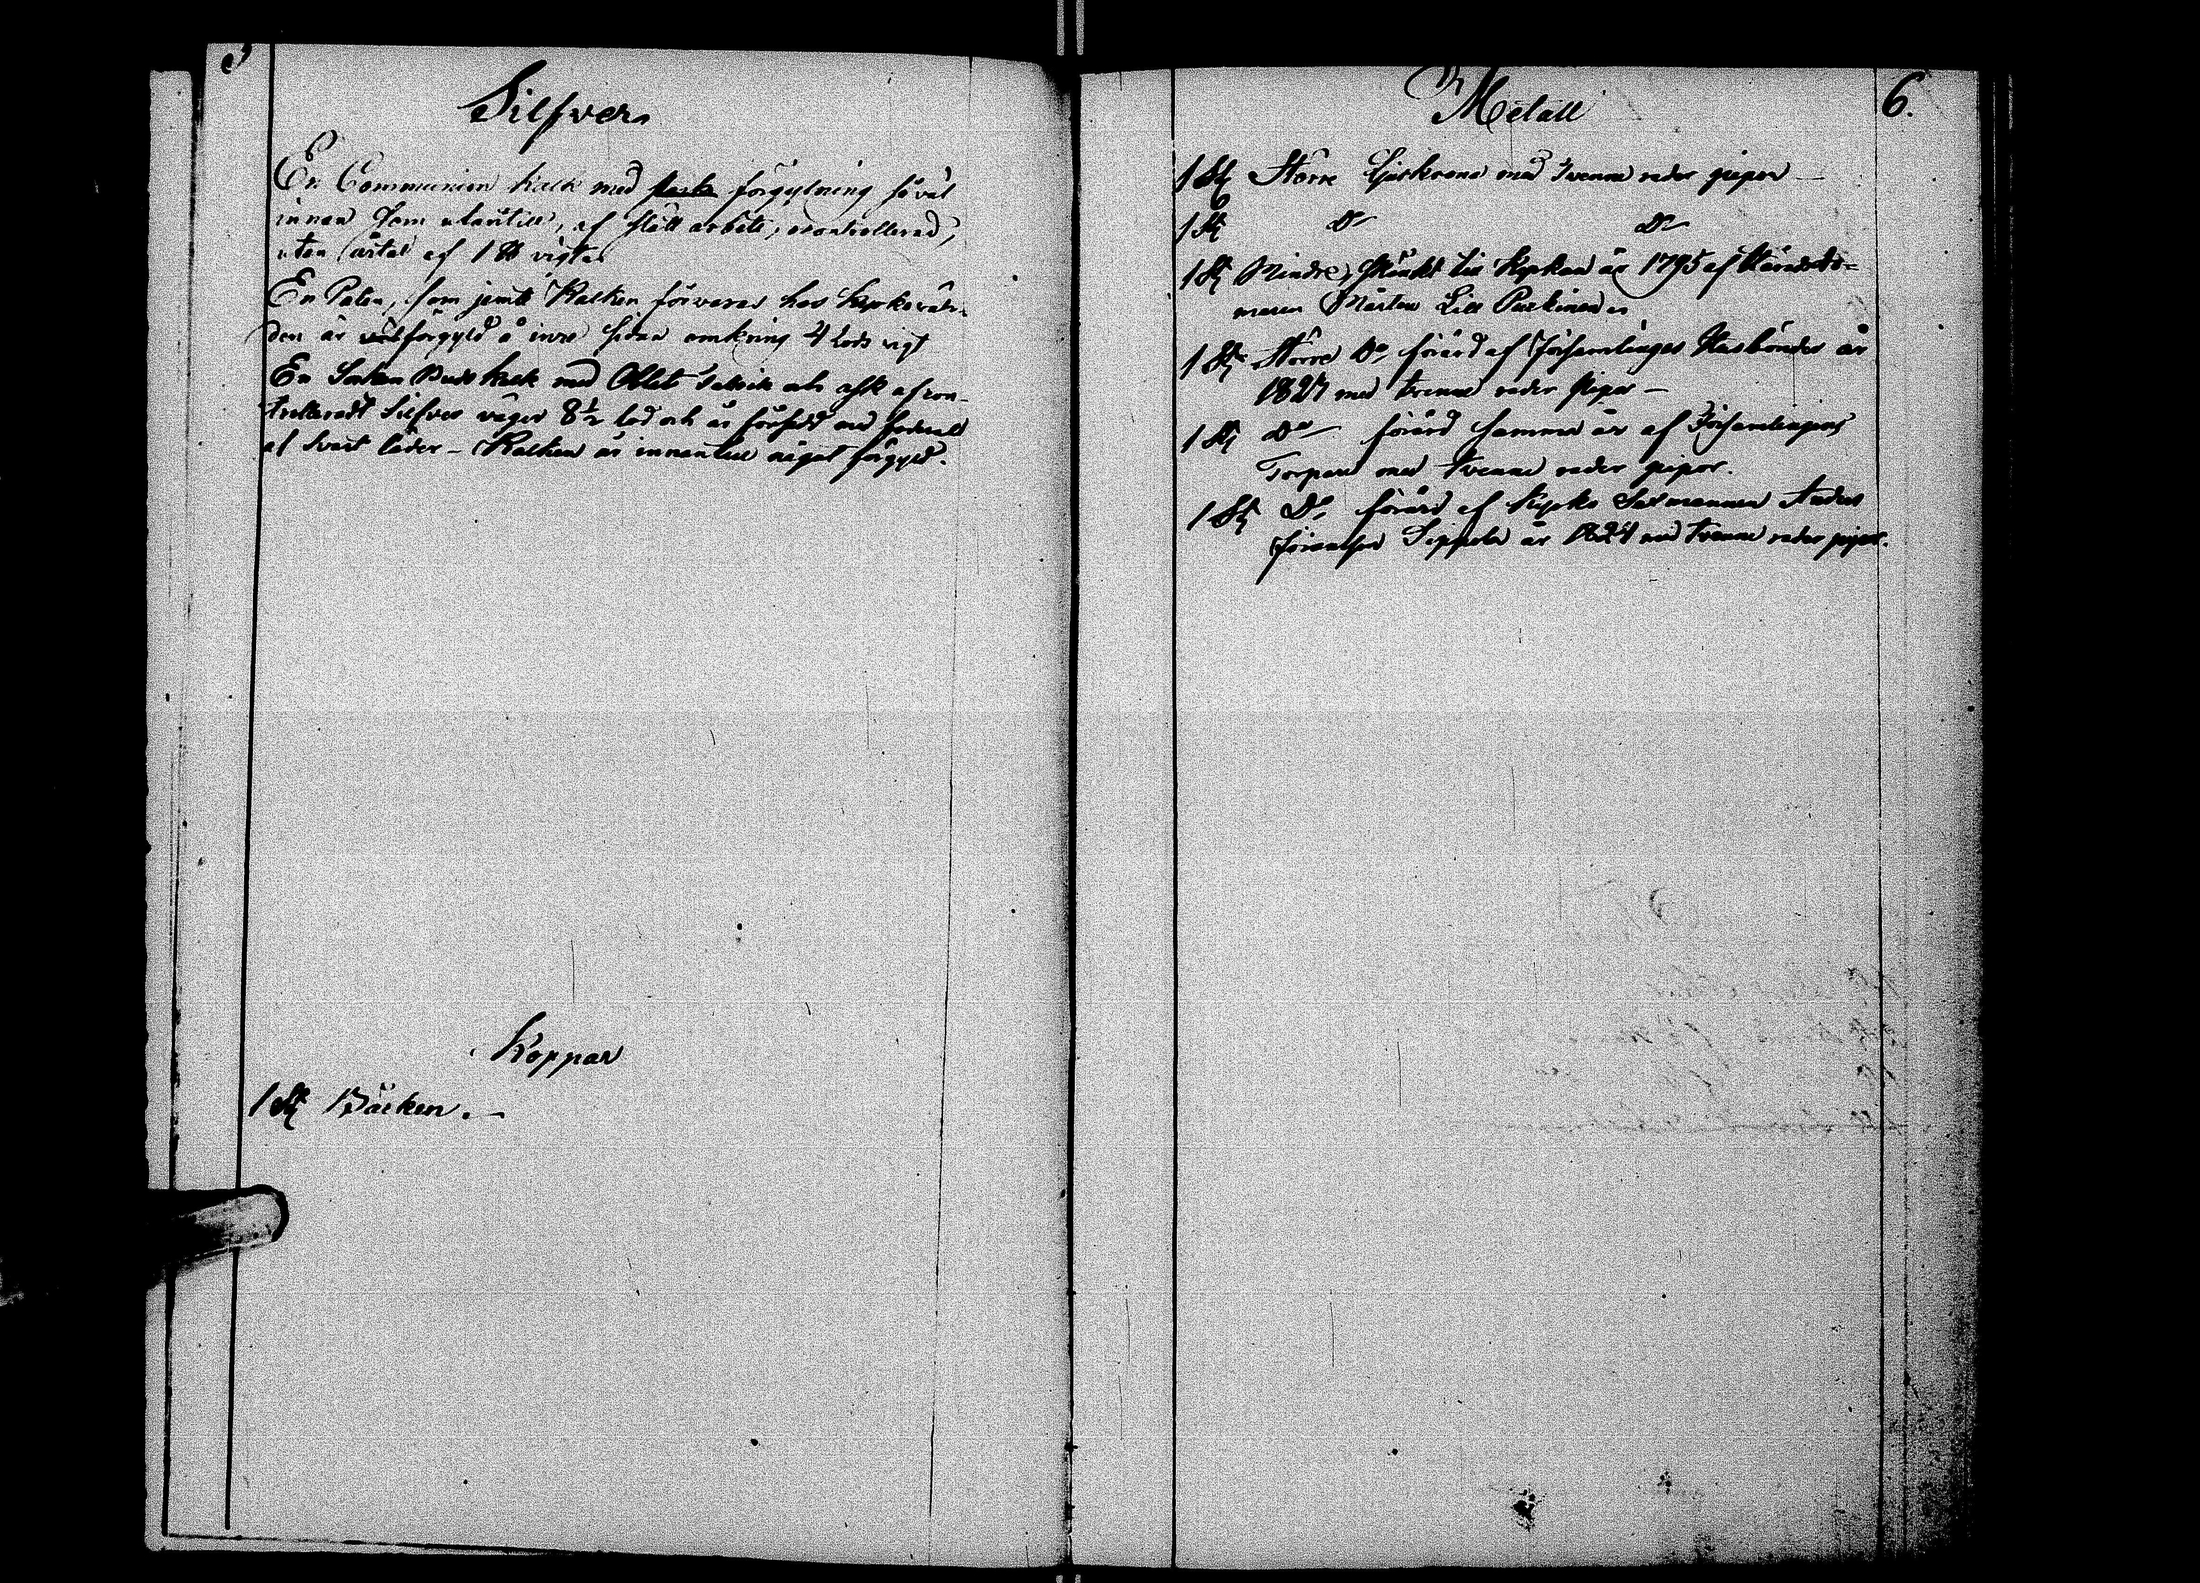 5
Silfver
En Communion kalk med stark förgyllning såväl
innan som utantill, af slätt arbete, okontrollerad,
utan årtal af 1 ℔ vigt
En Paten, som jemte Kalken förvaras hos Kyrkovär-
den är väl förgyld å inre sidan omkring 4 lods vigt
En Socken Buds kalk med Oblat Tallrik och ask af con-
trolleradt Silfver väger 8½ lod och är försedd med foderal
af Svart läder – Kalken är innantill något förgyld.
Koppar
1 St Bäcken. –
Metall
6.
1 St Större Ljuskrona med tvenne rader pipor –
1 St Do Do
1 St Mindre, skänkt till Kyrkan år 1795 af Häradsdo-
maren Mårten Lill
1 St Större Do förärd af Församlingens Husbönder år
1827 med tvenne rader pipor –
1 St Do förärd samma år af Församlingens
Torpare med tvenne rader pipor.
1 St Do förärd af Kyrko Sexmannen Anders
Sippola år 1824 med tvenne rader pipor.